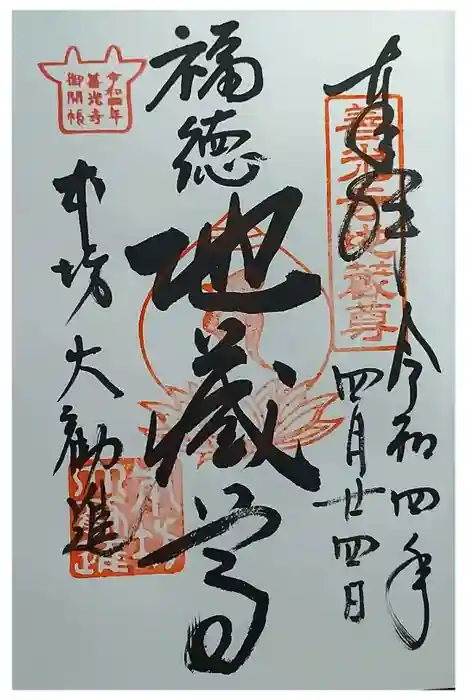 奉拝
善光寺地蔵尊
令和四年
四月廿四日
福徳
地蔵尊
本坊大勧進
令和四年
善光寺
御開帳